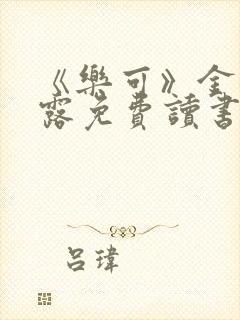 《樂可》全
露免費讀書
呂瑋